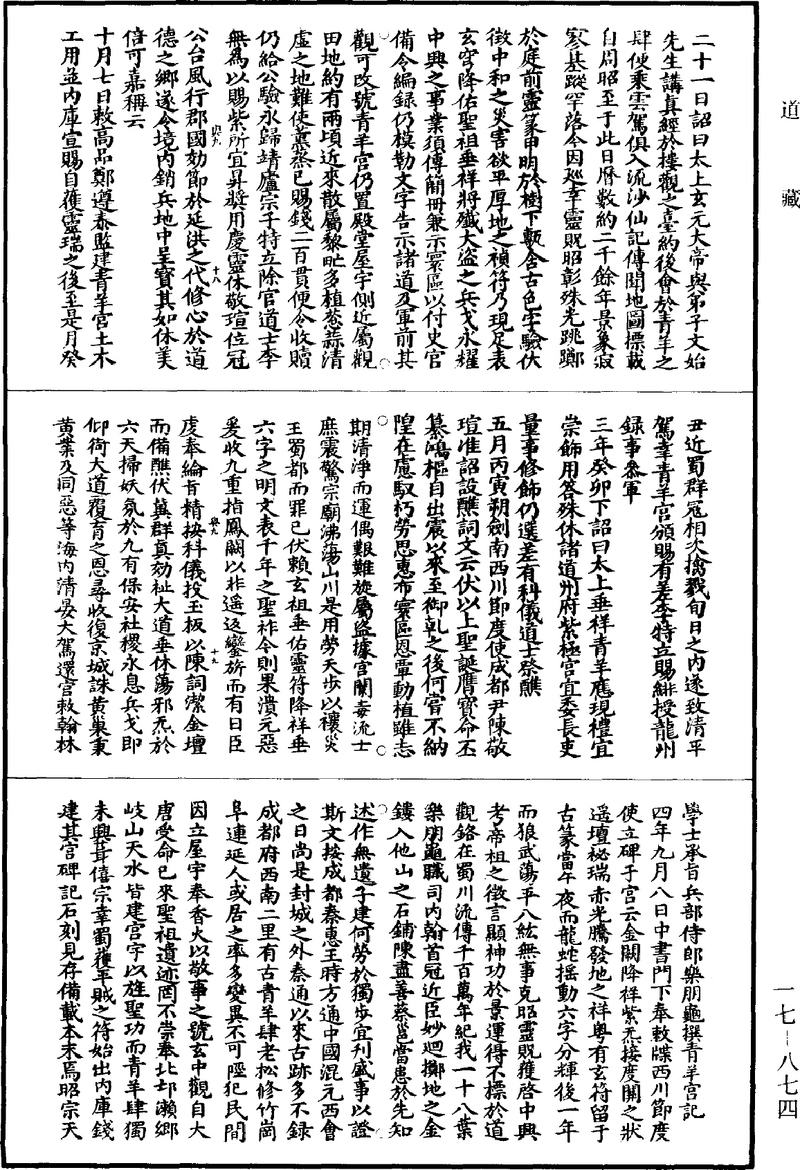 道藏
一七—八七四
二十一日詔曰太上玄元大帝與弟子文始
先生講真經於樓觀之臺約後會於青羊之
肆便乘雲駕俱入流沙仙記傳聞地圖標載
自周昭至于此日曆數約二千餘年景象寂
寥基蹤罕落今因巡幸靈貺昭彰殊光跳躑
於庭前靈篆申明於樹下甎含古色字驗休
徵中和之災害欲平厚地之禎符乃現足表
玄穹降佑聖祖垂祥將殲大盜之兵戈永耀
中興之事業須傳簡冊兼示寰區以付史官
備令編錄仍模勒文字告示諸道及軍前其
觀可改號青羊宮仍置殿堂屋宇側近屬觀
田地約有兩頃近來散屬黎甿多植葱蒜清
虛之地難使薰蒸已賜錢二百貫便令收贖
仍給公驗永歸靖廬宗子特立除官道士李
無為以賜紫所宜昇獎用慶靈休敬瑄位冠
公台風行郡國効節於延洪之代修心於道
德之鄉遂令境內銷兵地中呈寶其如休美
倍可嘉稱云
十月七日敕高品鄭遵泰監建青羊宮土木
工用並內庫宣賜自獲靈瑞之後至是月癸
丑近蜀群寇相次擒戮旬日之內遂致清平
駕幸青羊宮頒賜有差李特立賜緋授龍州
錄事參軍
三年癸卯下詔曰太上垂祥青羊應現禮宜
崇飾用答殊休諸道州府紫極宮宜委長吏
量事修飾仍選差有科儀道士祭醮
五月丙寅朔劍南西川節度使成都尹陳敬
瑄准詔設醮詞文云伏以上聖誕膺寶命丕
纂鴻樞自出震以來至御乹之後何嘗不納
隍在慮馭朽勞思惠布寰區恩覃動植雖志
期清淨而運偶艱難旋屬盜據宮闈毒流士
庶震驚宗廟沸蕩山川是用勞天步以禳災
王蜀都而罪已伏賴玄祖垂佑靈符降祥垂
六字之明文表千年之聖祚令則果潰元惡
爰收九重指鳳闕以非遥返鑾旂而有日臣
虔奉綸旨精按科儀投玉板以陳詞潔金壇
而備醮伏冀群真効祉大道垂休蕩邪炁於
六天掃妖氛於九有保安社稷永息兵戈即
仰荷大道覆育之恩尋收復京城誅黃巢秉
黃業及同惡等海內清晏大駕還宮敕翰林
學士承旨兵部侍郎樂朋龜撰青羊宮記
四年九月八日中書門下奉敕牒西川節度
使立碑于宮云金闕降祥紫炁接度關之狀
遥壇祕瑞赤光騰發地之祥粤有玄符留于
古篆當午夜而龍蛇揺動六字分輝後一年
而狼武蕩平八紘無事克昭靈貺獲啓中興
考帝祖之徵言顯神功於景運得不標於道
觀銘在蜀川流傳千百萬年紀我一十八葉
樂朋龜職司內翰首冠近臣妙迴擲地之金
鏤入他山之石鋪陳盡善蔡邕當患於先知
述作無遺子建何勞於獨步宜刊盛事以證
斯文按成都秦惠王時方通中國混元西會
之日尚是封城之外秦通以來古跡多不錄
成都府西南二里有古青羊肆老松修竹崗
阜連延人或居之率多變異不可陘犯民間
因立屋宇奉香火以敬事之號玄中觀自大
唐受命已來聖祖遺迹罔不崇奉北邙瀨鄉
岐山天水皆建宮宇以旌聖功而青羊肆獨
未興葺僖宗幸蜀獲平賊之符始出內庫錢
建其宮碑記石刻見存備載本末焉昭宗天